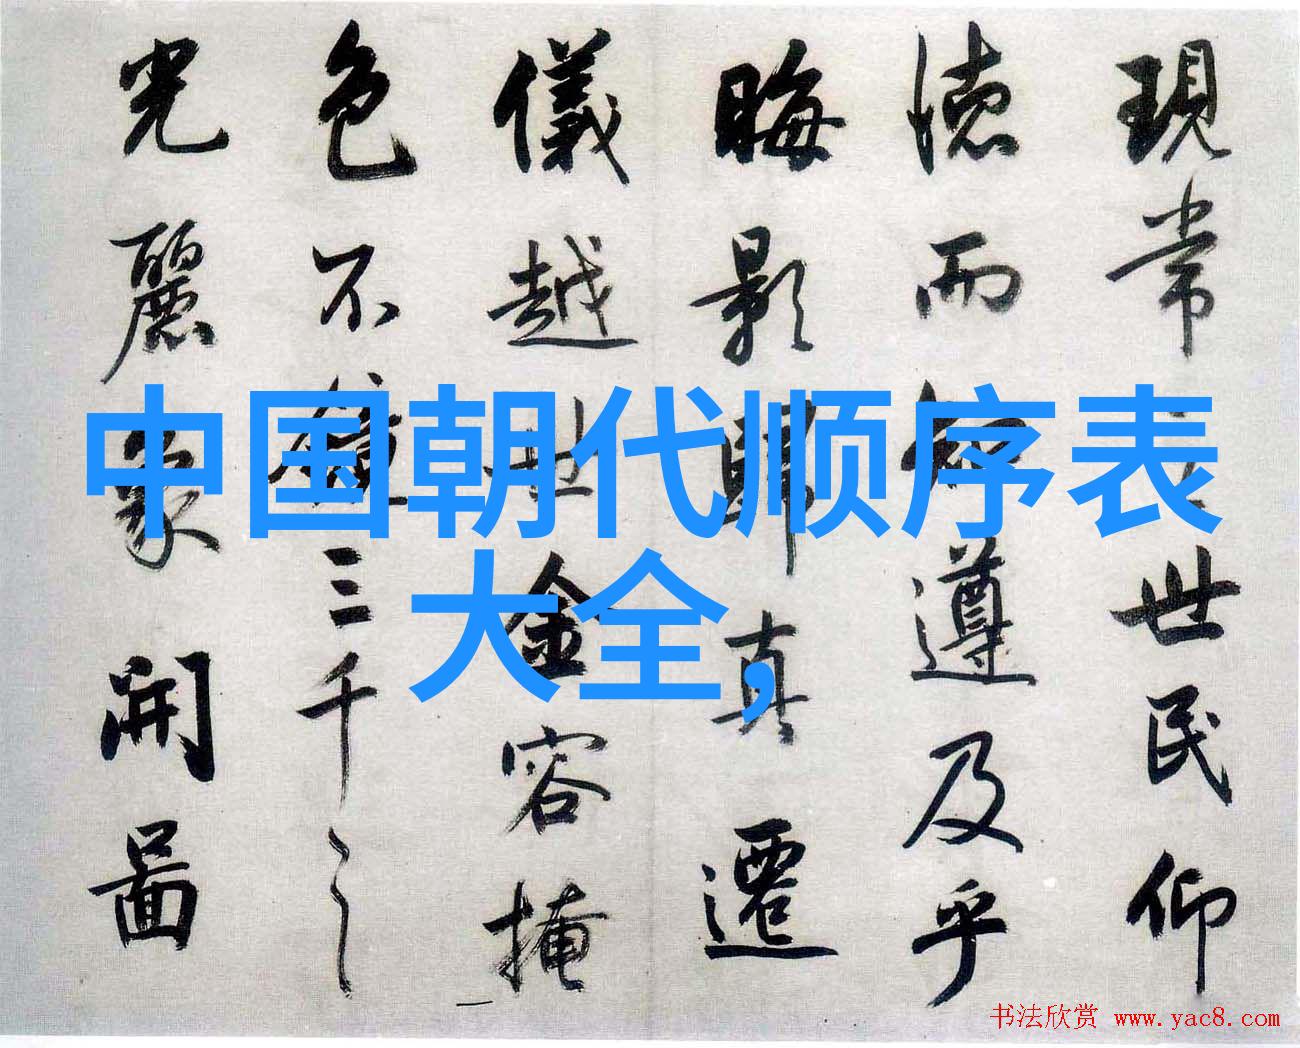 中国朝代顺序表
大全,
現常世民仰
德而知遵及乎
晦影歸真遷
儀越世金容掩
色不鏡三千之
光麗象開圖
书法欣赏 www.yac8.com